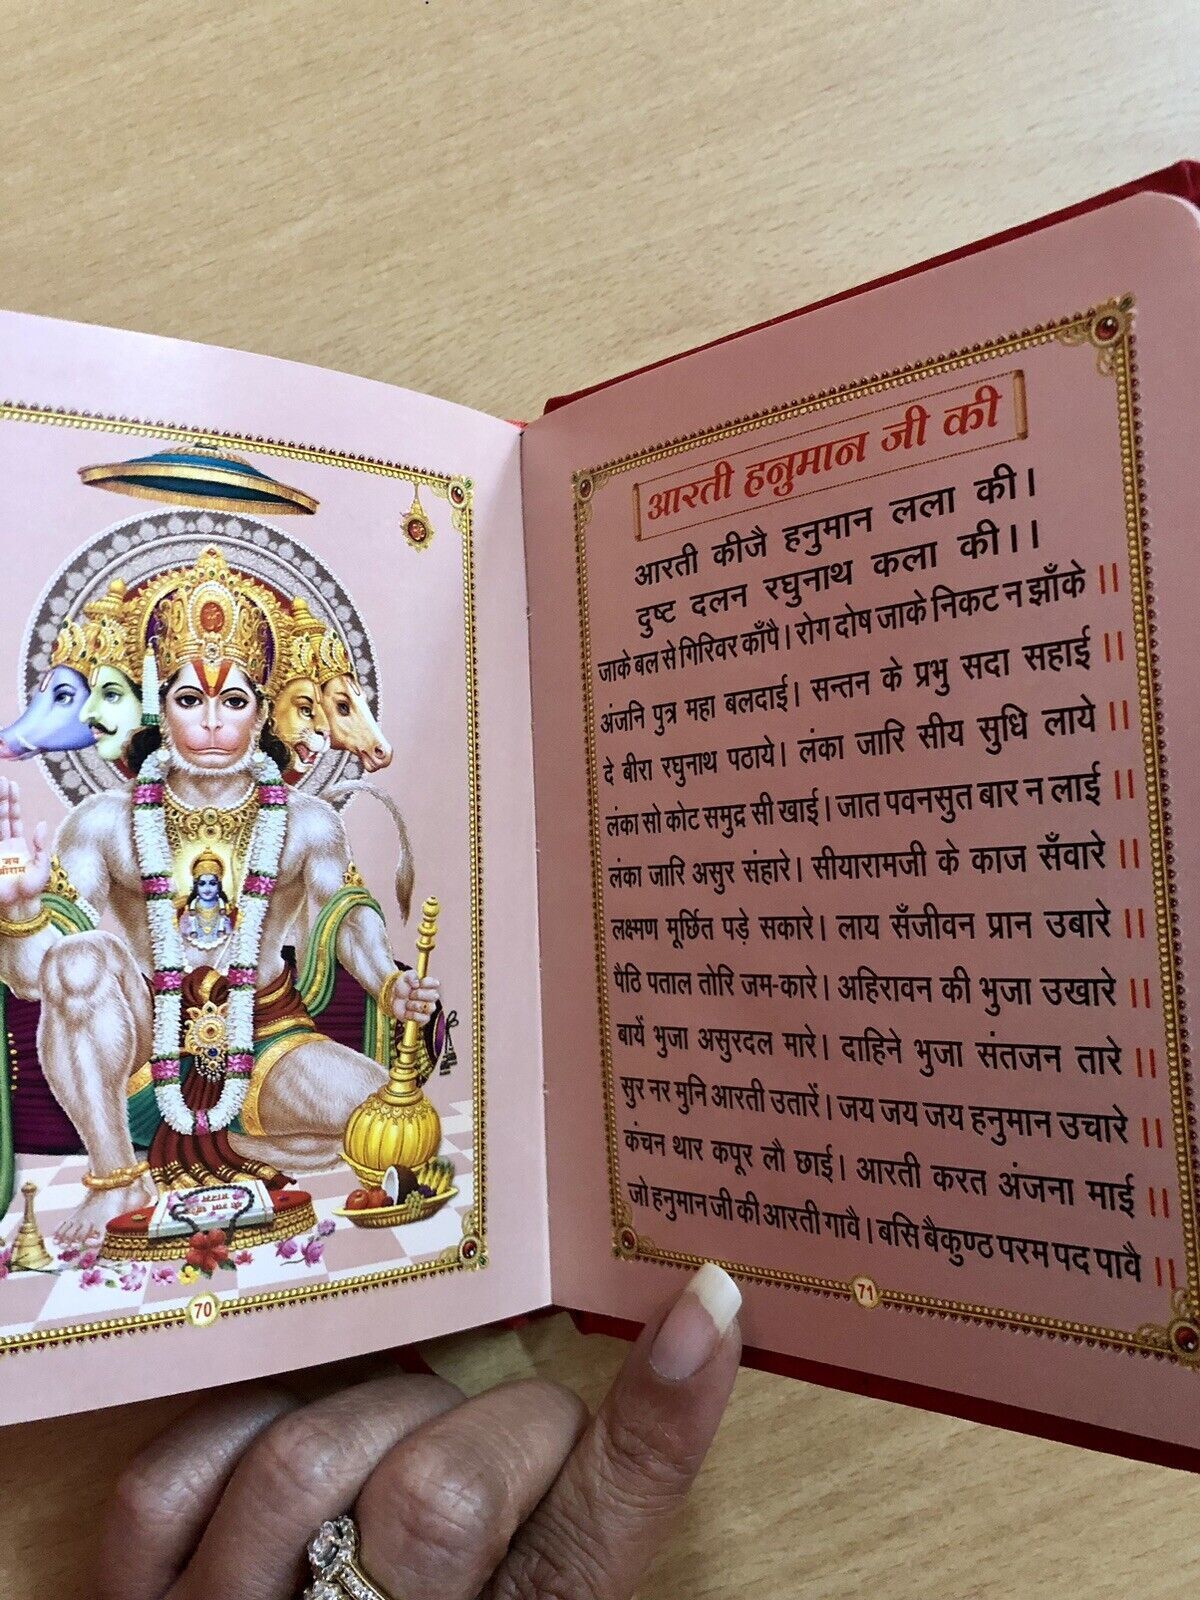 जय
श्रीराम
70
आरती हनुमान जी की
आरती कीजै हनुमान लला की।
दुष्ट दलन रघुनाथ कला की।।
जाके बल से गिरिवर काँपै। रोग दोष जाके निकट न झाँके ॥
अंजनि पुत्र महा बलदाई। सन्तन के प्रभु सदा सहाई ॥
दे बीरा रघुनाथ पठाये। लंका जारि सीय सुधि लाये ॥
लंका सो कोट समुद्र सी खाई। जात पवनसुत बार न लाई ॥
लंका जारि असुर संहारे। सीयारामजी के काज सँवारे ॥
लक्ष्मण मूर्छित पड़े सकारे। लाय सँजीवन प्रान उबारे ॥
पैठि पताल तोरि जम-कारे। अहिरावन की भुजा उखारे ॥
बायें भुजा असुरदल मारे। दाहिने भुजा संतजन तारे ॥
सुर नर मुनि आरती उतारें। जय जय जय हनुमान उचारे ॥
कंचन थार कपूर लौ छाई। आरती करत अंजना माई ॥
जो हनुमान जी की आरती गावै। बसि बैकुण्ठ परम पद पावै ॥
71